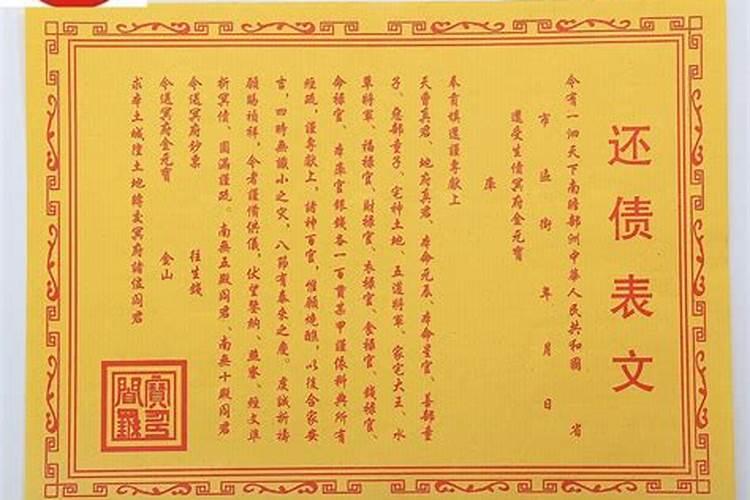 还债表文
今有一泗天下南瞻部洲中華人民共和國 省
市 區 街 年 月 日
還受生債冥府金元寶
庫
奉育填還謹專獻上
天曹真君、地府真君、本命元辰、本命星官、善部童
子、惡部童子、宅神土地、五道將軍、家宅大王、水
草將軍、福祿官、財祿官、衣祿官、食祿官、錢祿官、
命祿官、本庫官銀錢各一百貫某甲謹依科典所有
經疏，謹專獻上，諸神百官，惟願燒醮，以後合家安
吉，四時無讖小之災，八節有泰來之慶。虔誠祈禱
願賜禎祥，令者謹備供儀，伏望鑒納、燕寥、經文準
折冥債、圓滿謹疏。南無五殿閻君、南無十殿閻君
令送冥府鈔票 往生錢
令送冥府金元寶 金山
求本土城隍土地轉交冥府諸位閻君